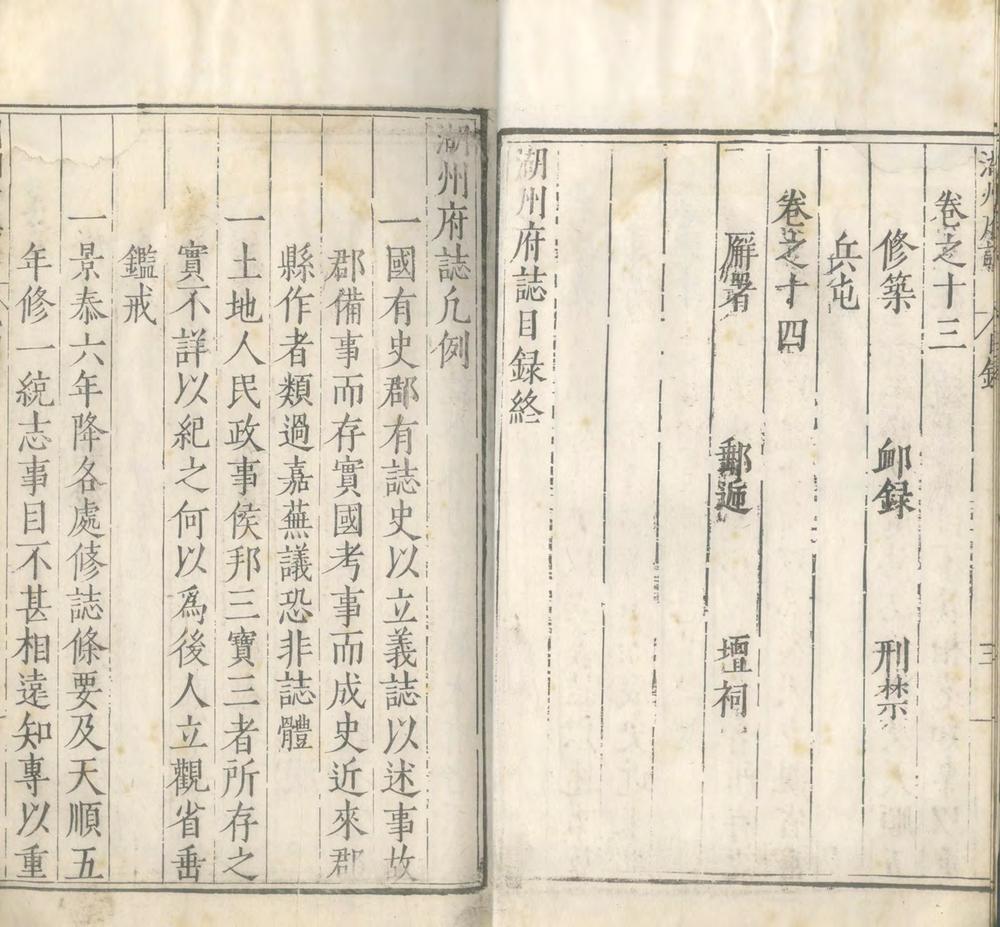 湖州府誌 目録
卷之十三
修築 卹録 刑禁
兵屯
卷之十四
廨署 郵遞 壇祠
湖州府誌目録終
三
湖州府誌凡例
一國有史郡有誌史以立義誌以述事故
郡備事而存實國考事而成史近來郡
縣作者類過嘉蕪議恐非誌體
一土地人民政事侯邦三寶三者所存之
實不詳以紀之何以爲後人立觀省垂
鑑戒
一景泰六年降各處修誌條要及天順五
年修一統志事目不甚相遠知專以重